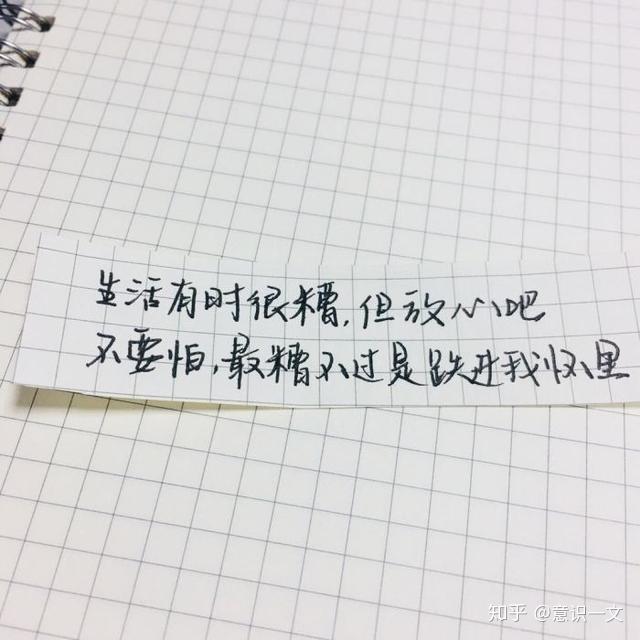 生活有时很糟,但放心吧
不要怕,最糟不过是跌进我怀里
知乎 @意识一文